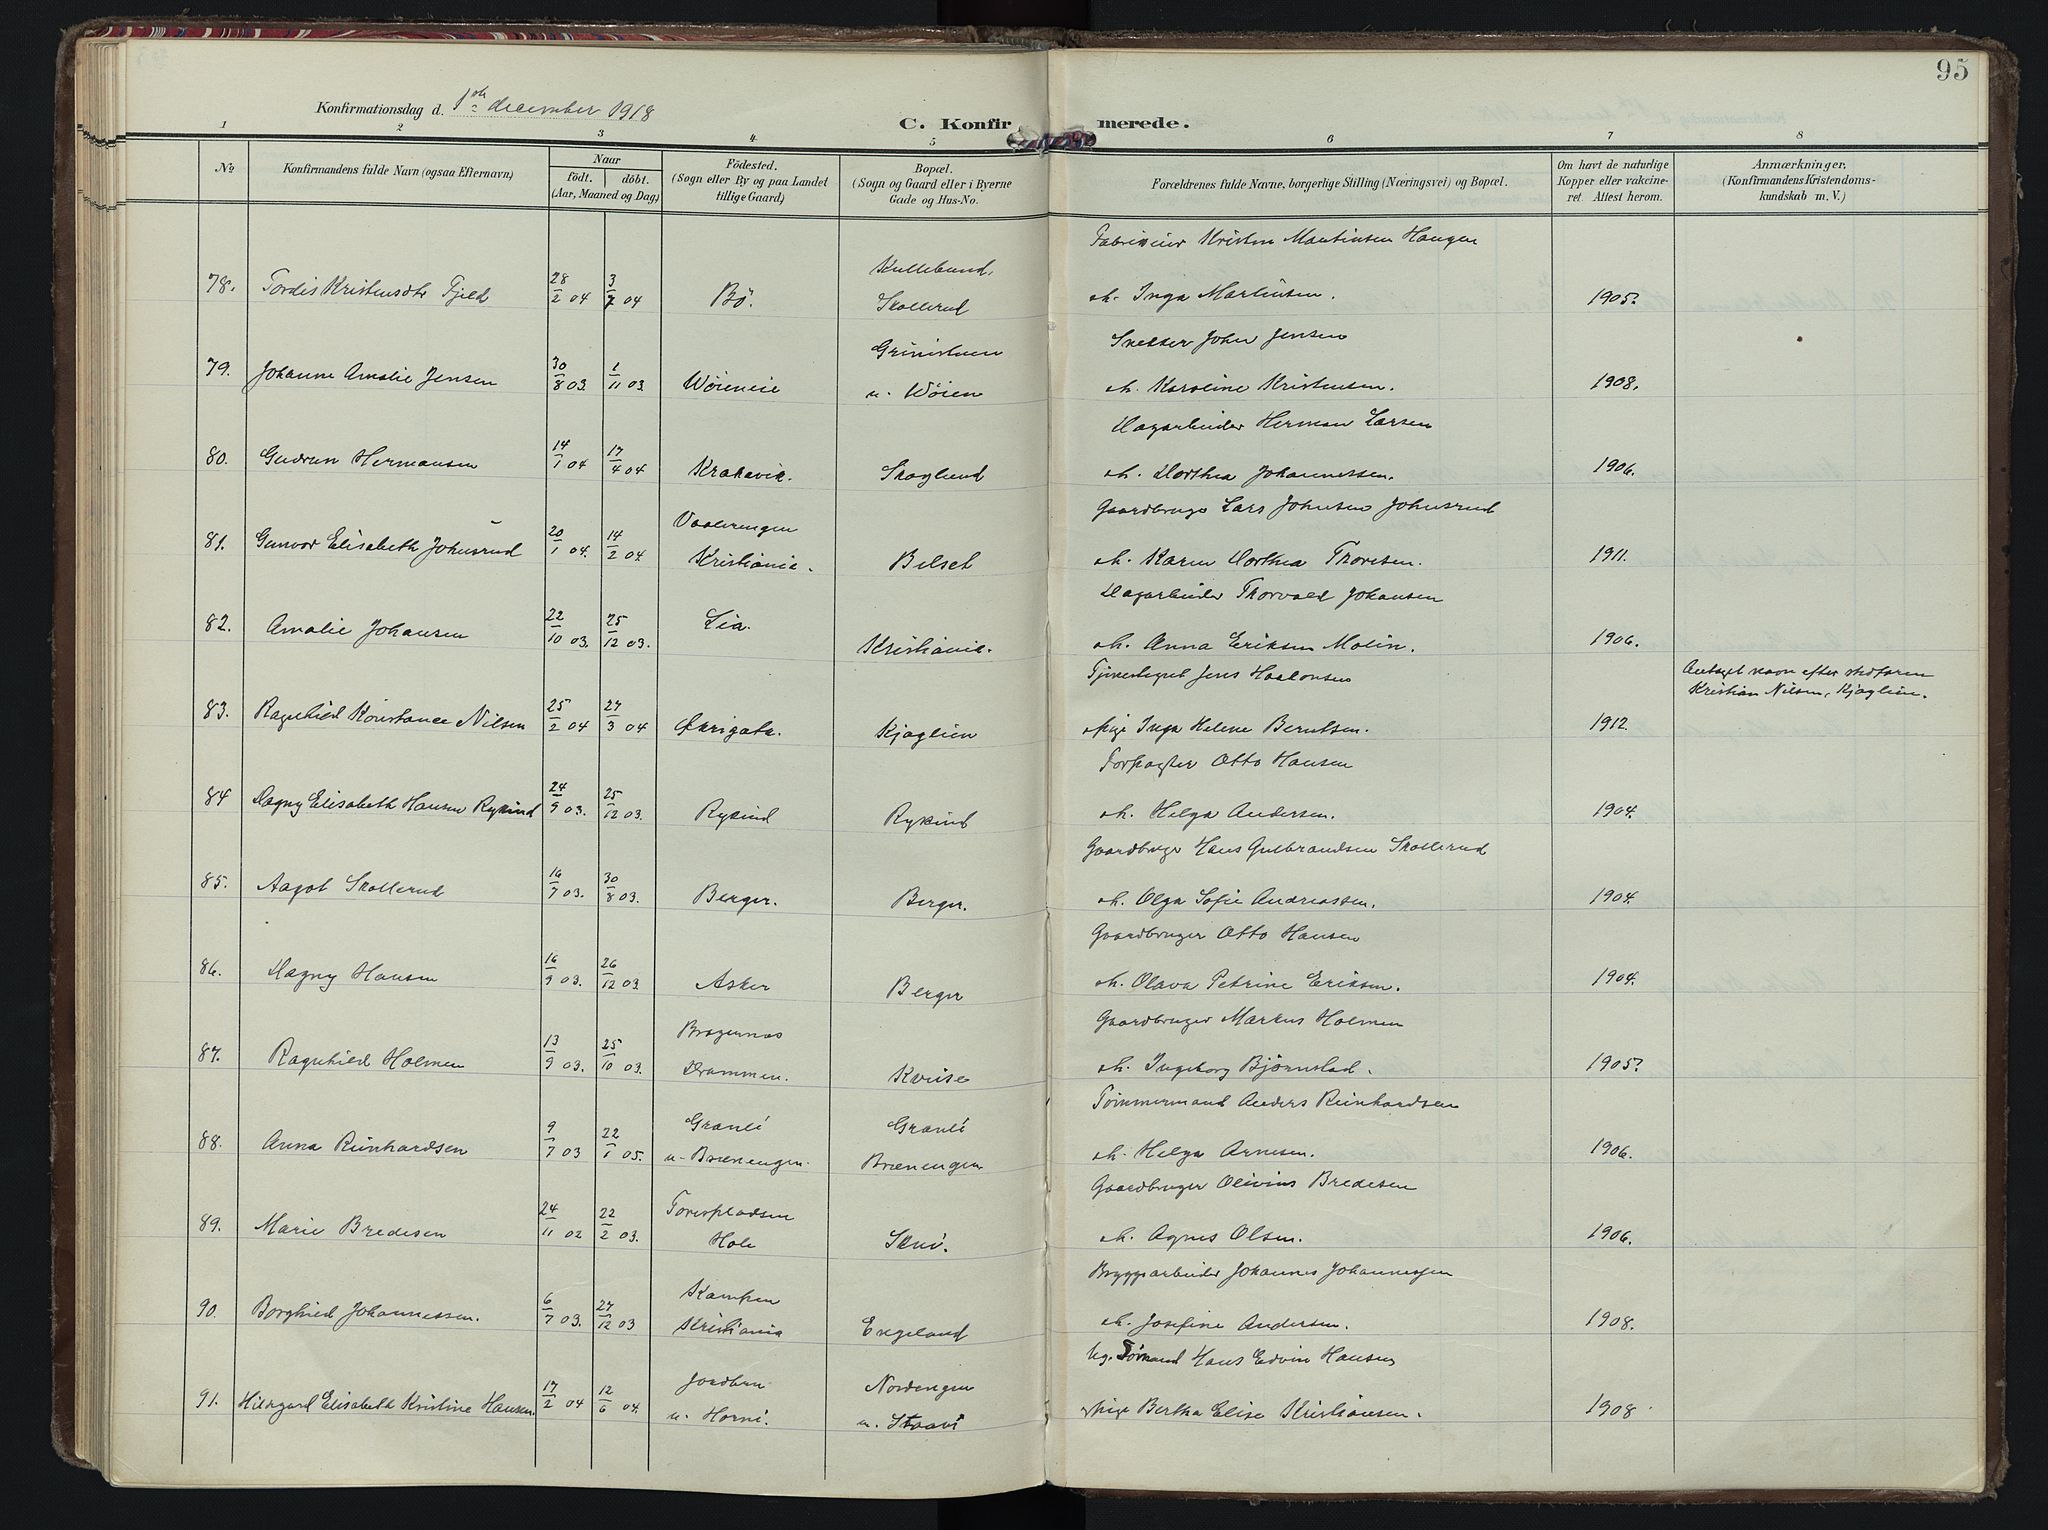 95
Konfirmationsdag d. 1ste december 1918
C. Konfirmerede.
1 2 3 4 5 6 7 8
No
Konfirmandens fulde Navn (ogsaa Efternavn)
Naar
födt. döbt.
(Aar, Maaned og Dag)
Födested.
(Sogn eller By og paa Landet
tillige Gaard)
Bopæl.
(Sogn og Gaard eller i Byerne
Gade og Hus-No.
Forældrenes fulde Navne, borgerlige Stilling (Næringsvei) og Bopæl.
Om havt de naturlige
Kopper eller vakcine-
ret. Attest herom.
Anmærkninger,
(Konfirmandens Kristendoms-
kundskab m. V.)
Kristen Martinsen Haugen
78. Tordis Kristensdtr Fjeld 28/2 04 3/7 04 Bö. Skollerud h. Inga Martinsen. 1905?
John Jensen
79. Johanne Amalie Jensen 30/8 03. 1/11 03. Wöieneie u. Wöien h. Karoline Kristensen. 1908.
Dagarbeider Herman Larsen
80. Gudrun Hermansen 14/1 04 17/4 04 Krakavik. Skoglund h. Dorthea Johannessen. 1906.
Gaardbruger Lars Johnsen Johnsrud
81. Gunvor Elisabeth Johnsrud 20/1 04. 14/2 04. Vaalerengen
Kristiania. Belset h. Karen Dorthea Thoresen. 1911.
Dagarbeider Thorvald Johansen
82. Amalie Johansen 22/10 03. 25/12 03. Lia. Kristiania. h. Anna Eriksen Molin. 1906.
Tjenestegut Jens Haakonsen
Antaget navn efter stedfaren
Kristian Nilsen, Kjaglien.
83. Ragnhild Konstance Nilsen 25/2 04 27/3 04 Kjaglien pige Inga Helene Berntsen. 1912.
Forpagter Otto Hansen
84 Dagny Elisabeth Hansen Rykind 24/9 03. 25/12 03. Rykind Rykind h. Helga Andersen. 1904.
Gaardbruger Hans Gulbrandsen Skollerud
85. Aagot Skollerud 16/7 03. 30/8 03. Berger. Berger. h. Olga Sofie Andreassen. 1904.
Gaardbruger Otto Hansen
86. Dagny Hansen 16/9 03. 26/12 03. Asker Berger h. Olava Petrine Eriksen. 1904.
Gaardbruger Markus Holmen
87. Ragnhild Holmen 13/9 03. 25/10 03. Bragernæs
Drammen. h. Ingeborg Björnstad. 1905?
Tömmermand Anders Reinhardsen
88. Anna Reinhardsen 9/7 03 22/1 05. Granli
u. Brænengen. Granli
Brænengen h. Helga Arnesen. 1906.
Gaardbruger Olivius Bredesen
89. Marie Bredesen 24/11 02 22/2 03. Hole Skui. h. Agnes Olsen. 1906.
Bryggearbeider Johannes Johannessen
90. Borghild Johannessen. 6/7 03. 27/12 03 Kampen
Kristiania Engeland h. Josefine Andersen. 1908.
Ug. Hans Edvin Hansen
91. Hildegard Elisabeth Kristine Hansen. 17/2 04 12/6 04. Jordbru
u. Horni. Nordengen
u. Staavi pige Bertha Elise Kristiansen. 1908